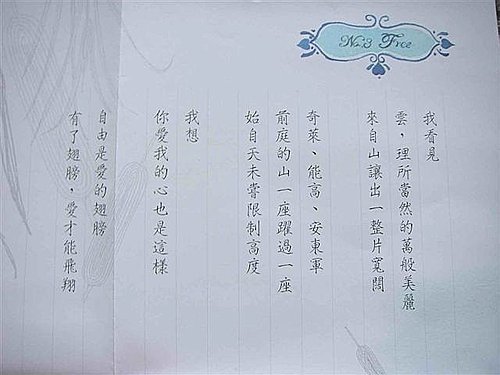 No.3 Free
我看見
雲，理所當然的萬般美麗
來自山讓出一整片寬闊
奇萊、能高、安東軍
前庭的山一座躍過一座
始自天未嘗限制高度
我想
你愛我的心也是這樣
自由是愛的翅膀
有了翅膀，愛才能飛翔